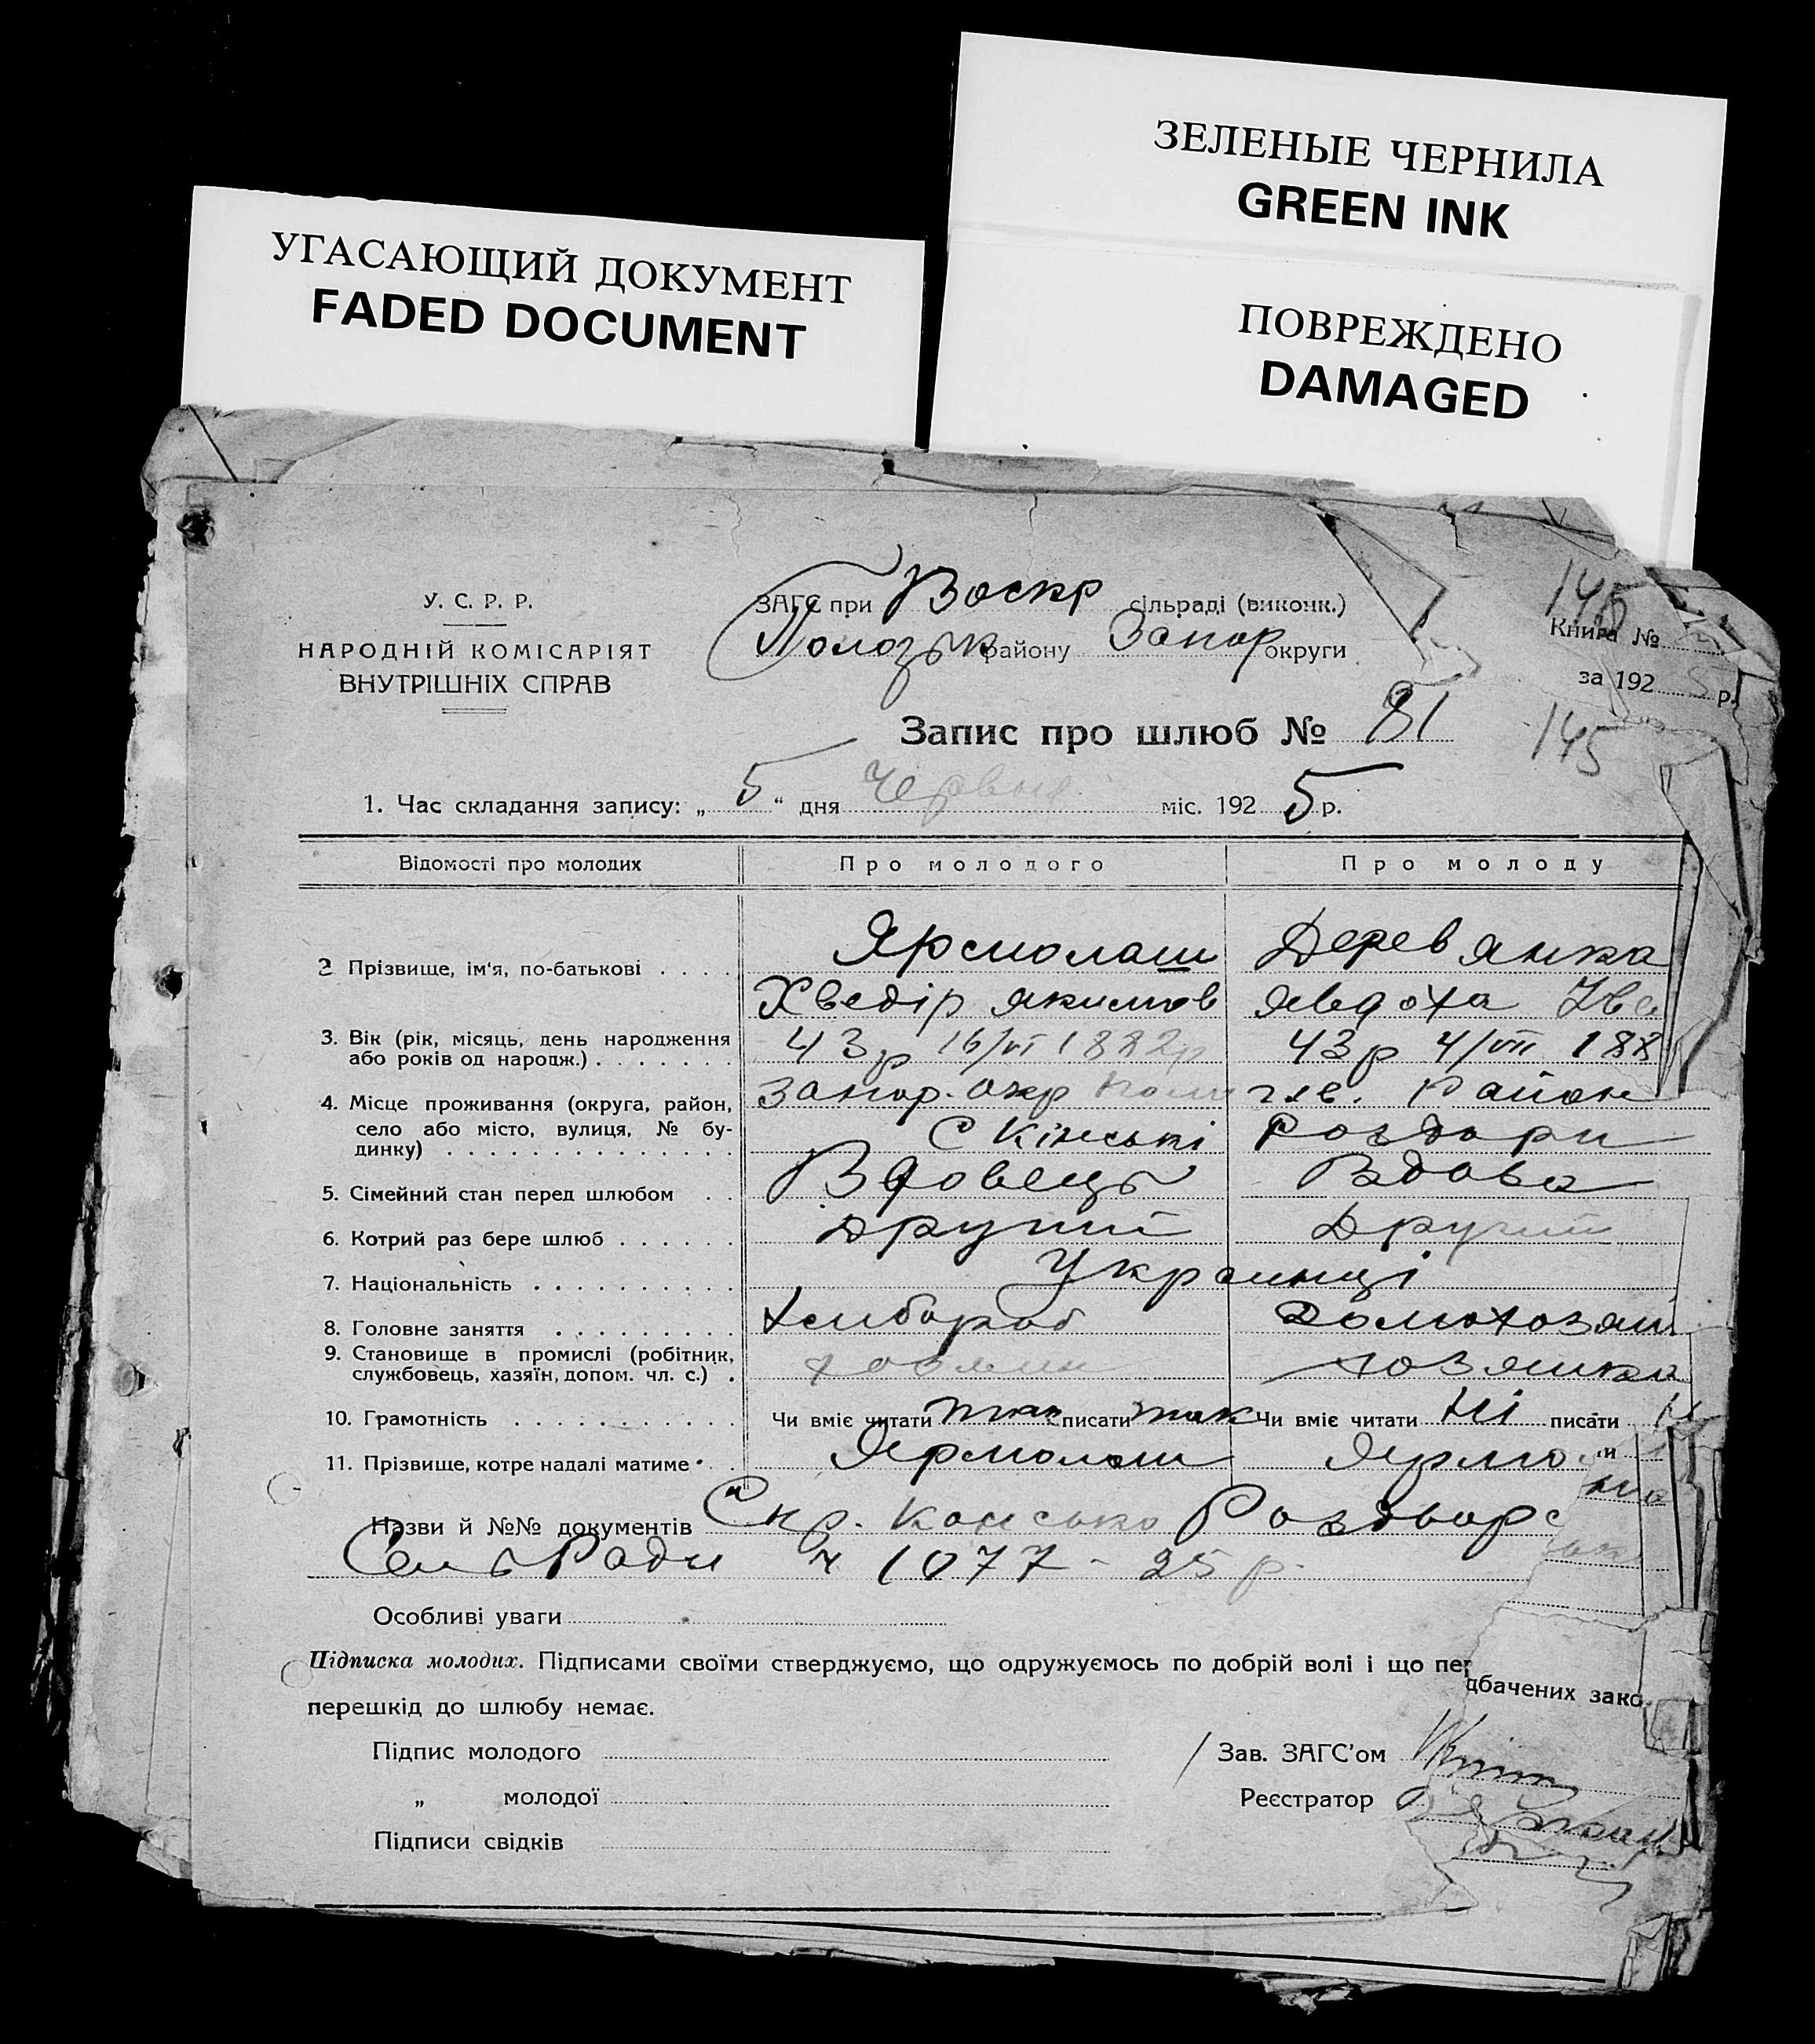 ЗЕЛЕНЫЕ ЧЕРНИЛА
GREEN INK
УГАСАЮЩИЙ ДОКУМЕНТ
FADED DOCUMENT
ПОВРЕЖДЕНО
DAMAGED
У. С. Р. Р.
НАРОДНІЙ КОМІСАРІЯТ
ВНУТРІШНІХ СПРАВ
ЗАГС при Воскр сільраді (виконк.)
Пологськ району Запор округи
145
Книга №
за 192 5 р.
145
Запис про шлюб № 81
1. Час складання запису: „ 5 “ дня Червня міс. 192 5 р.
Відомості про молодих Про молодого Про молоду
2 Прізвище, ім'я, по-батькові . . . . Ярмолаш Деревянка
Хведір якимов явдоха Ива
3. Вік (рік, місяць, день народження
або років од народж.) . . . . . . . 43 р 16/VI 1882р 43 р 4/VII 188
4. Місце проживання (округа, район,
село або місто, вулиця, № бу-
динку) . . . . . . . . . . . . . . Запор. окр Район
с Кінські Роздори
5. Сімейний стан перед шлюбом . . Вдовець Вдова
6. Котрий раз бере шлюб . . . . . . Другий Другий
7. Національність . . . . . . . . . . Украинці
8. Головне заняття . . . . . . . . . Хлибороб Домохозяй
9. Становище в промислі (робітник,
службовець, хазяїн, допом. чл. с.) . хозяин хозяйка
10. Грамотність . . . . . . . . . . . Чи вміє читати так писати так Чи вміє читати Ні писати Н
11. Прізвище, котре надалі матиме . . Ярмолаш Ярмо
Назви й №№ документів Спр. Консько Роздорс
Сельради ч 1077 - 25 р.
Особливі уваги
Підписка молодих. Підписами своїми стверджуємо, що одружуємось по добрій волі і що пер
дбачених зако
перешкід до шлюбу немає.
Підпис молодого
„ молодої
Підписи свідків
Зав. ЗАГС'ом
Реєстратор